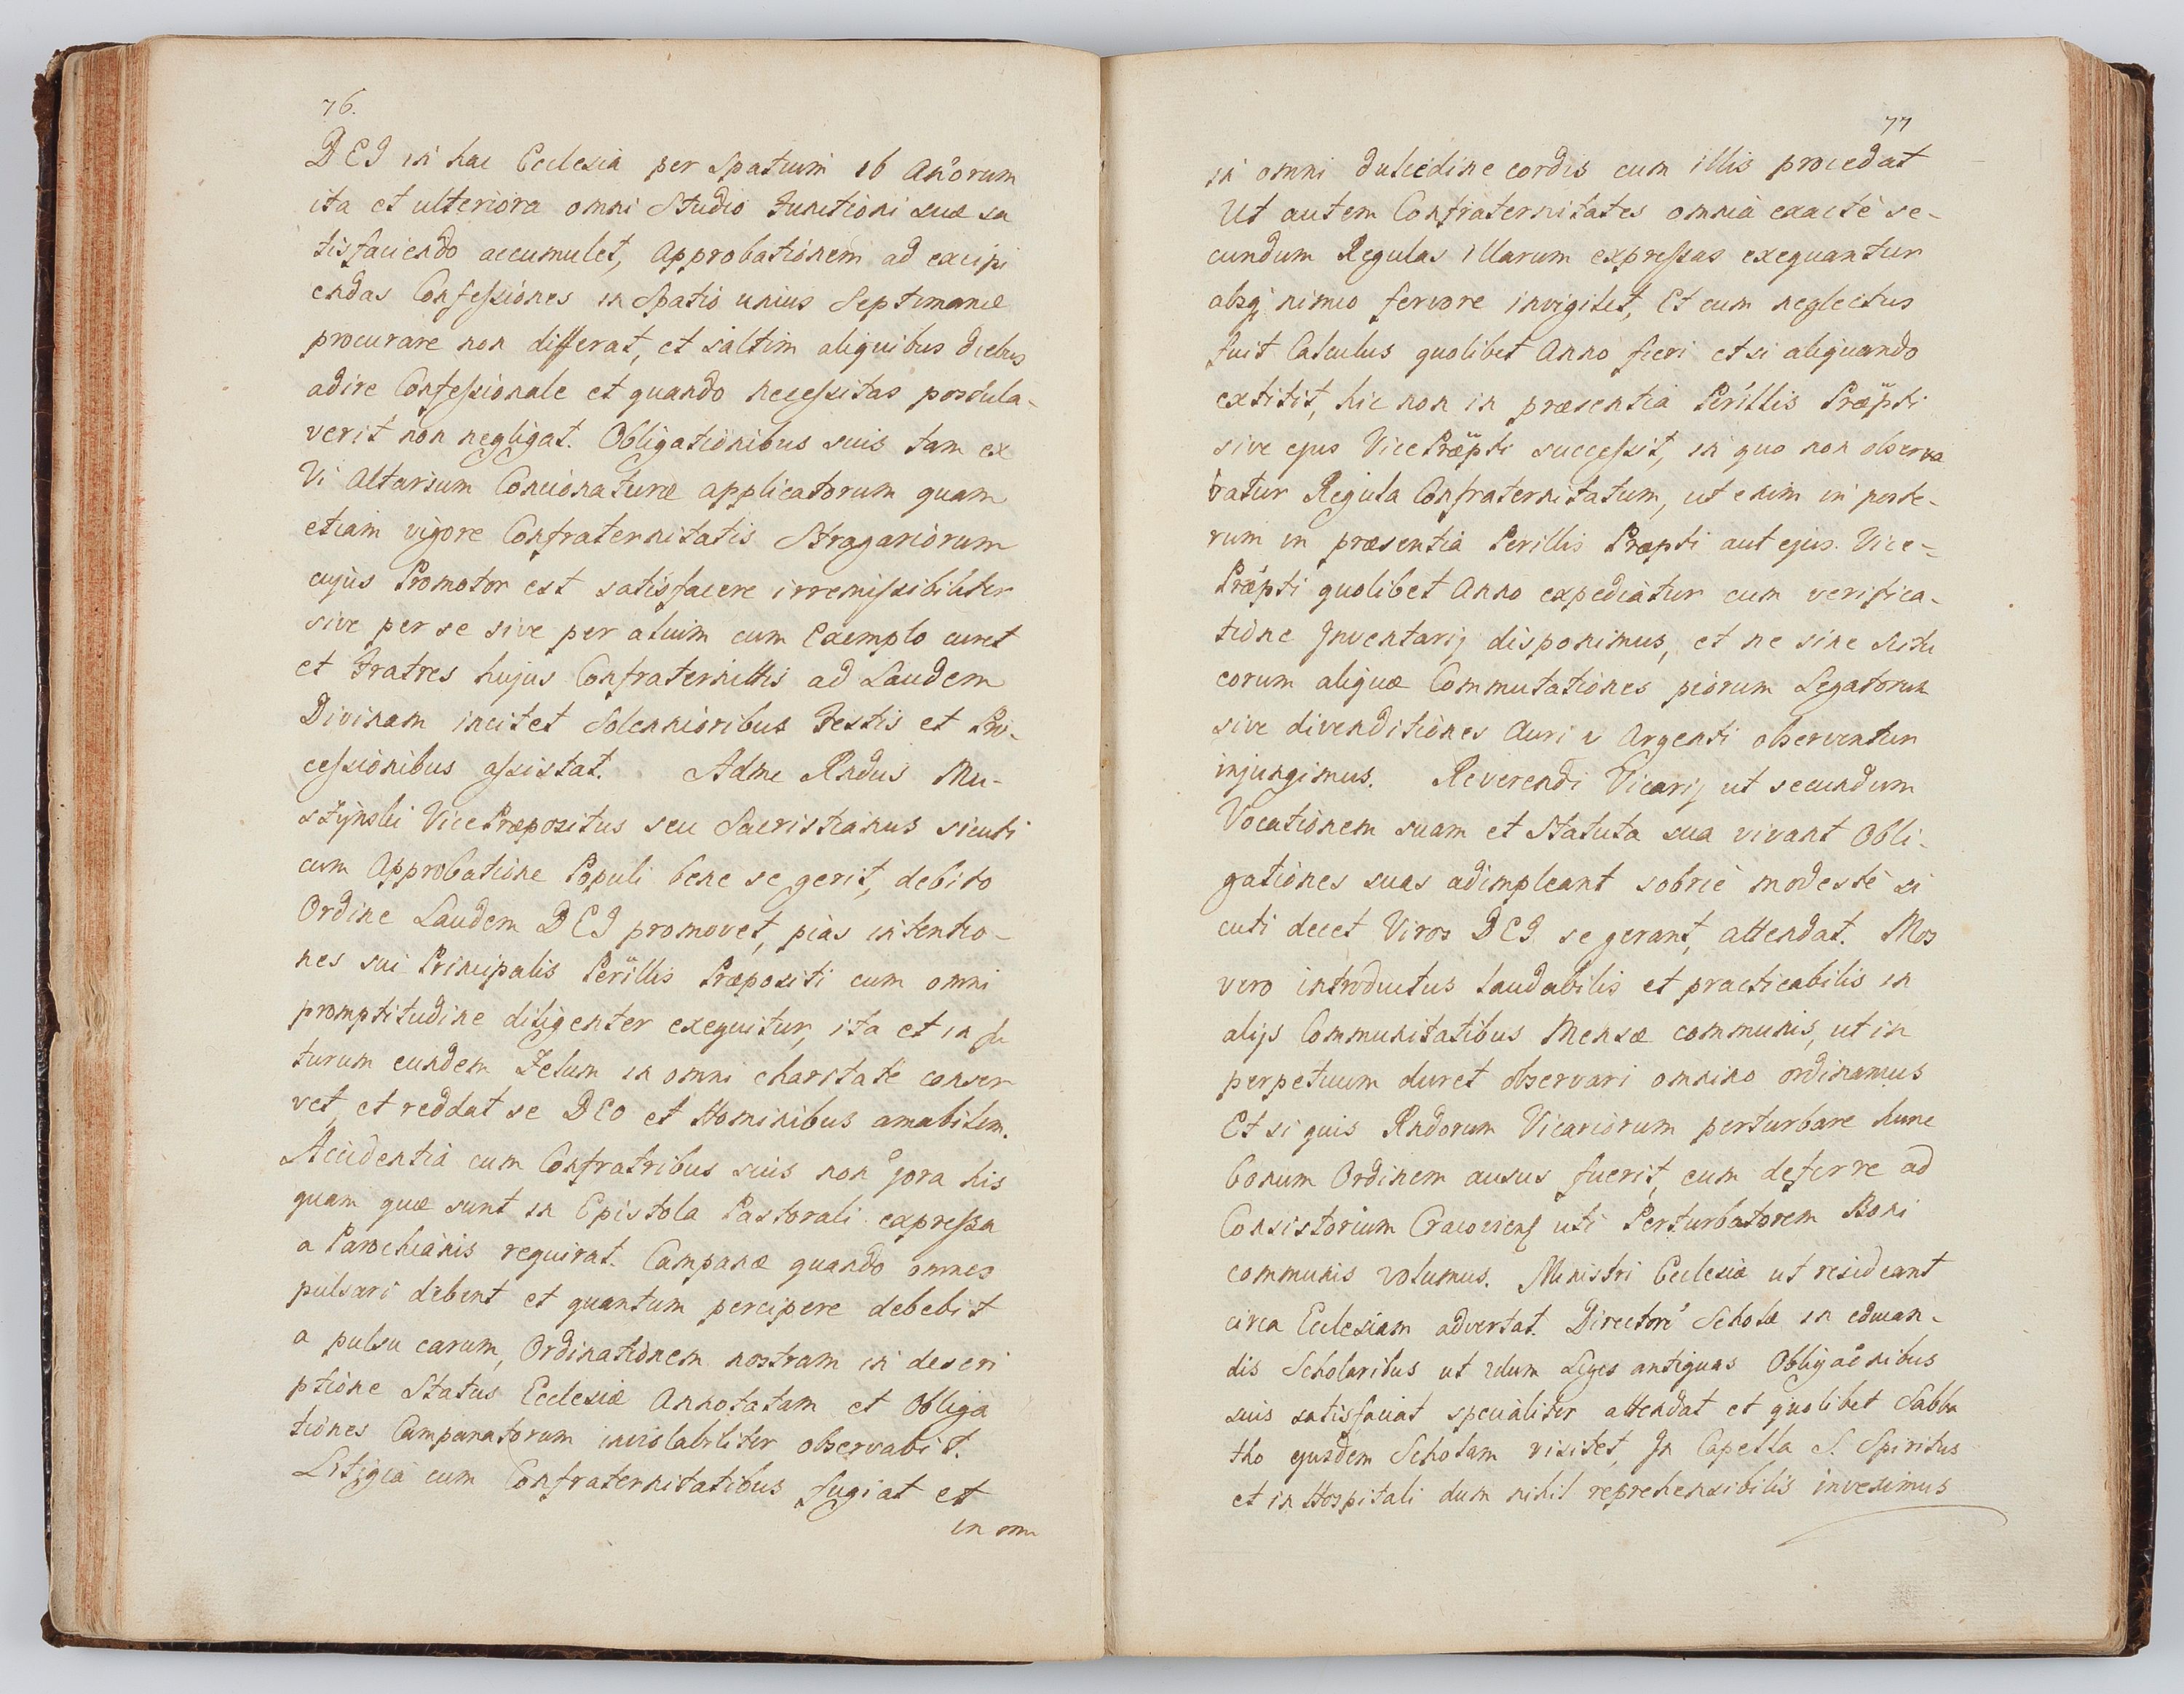 76.
DEI in hac Ecclesia per Spatium 16 Anorum
ita et ulteriora omni Studio Functioni suæ sa
tisfaciendo accumulet, Approbationem ad excipi
endas Confessiones in Spatio unius Septimanæ
procurare non differat, et saltim aliquibus diebus
adire Confessionale et quando necessitas postula-
verit non negligat. Obligationibus suis tam ex
Vi Altarium Concionaturæ applicatorum quam
etiam vigore Confraternitatis Stragariorum
cujus Promotor est satisfacere irremissibiliter
sive per se sive per alium cum Exemplo curet
et Fratres hujus Confraternittis ad Laudem
Divinam incitet Solennioribus Festis et Pro-
cessionibus assistat. Adme Rndus Mu-
szyński VicePræpositus seu Sacristianus sicuti
cum Approbatione Populi bene se gerit, debito
Ordine Laudem DEI promovet, pias intentio-
nes sui Principalis Perillis Præpositi cum omni
promptitudine diligenter exequitur, ita et in fu
turum eundem Zelum in omni charitate conser
vet, et reddat se DEO et Hominibus amabilem.
Accidentia cum Confratribus suis non jora his
quam quæ sunt in Epistola Pastorali expressa
a Parochianis requirat. Campanæ quando omnes
pulsari debent et quantum percipere debebit
a pulsu earum, Ordinationem nostram in descri
ptione Status Ecclesiæ Annotatam et Obliga
tiones Campanatorum inviolabiliter observabit.
Litigia cum Confraternitatibus fugiat et
in om
77
in omni dulcedine cordis cum illis procedat
Ut autem Confraternitates omnia exacte se-
cundum Regulas illarum expressas exequantur
absq nimio fervore invigilet, Et cum neglectus
fuit Calculus quolibet Anno fieri et si aliquando
extitit, hic non in præsentia Perillis Præpti
sive ejus VicePræpti successit, in quo non observa
batur Regula Confraternitatum, ut enim in poste-
rum in præsentia Perillis Præpti aut ejus Vice-
Præpti quolibet Anno expediatur cum verifica-
tione Inventarij disponimus, et ne sine scitu
eorum aliquæ Commutationes piorum Legatorum
sive divenditiones Auri v Argenti observentur
injungimus. Reverendi Vicarij ut secundum
Vocationem suam et Statuta sua vivant Obli-
gationes suas adimpleant sobrie modeste si
cuti decet Viros DEI se gerant, attendat. Mos
vero introductus laudabilis et practicabilis in
alijs Communitatibus Mensæ communis, ut in
perpetuum duret observari omnino ordinamus
Et si quis Rndorum Vicariorum perturbare hunc
bonum Ordinem ausus fuerit, eum deferre ad
Consistorium Cracoviens uti Perturbatorem Boni
communis volumus. Ministri Ecclesiæ ut resideant
circa Ecclesiam advertat. Directori Scholæ in educan-
dis Scholaribus ut 2dum Leges antiquas Obligaonibus
suis satisfaciat specialiter attendat et quolibet Sabba
tho ejusdem Scholam visitet, In Capella S. Spiritus
et in Hospitali dum nihil reprehensibilis invenimus